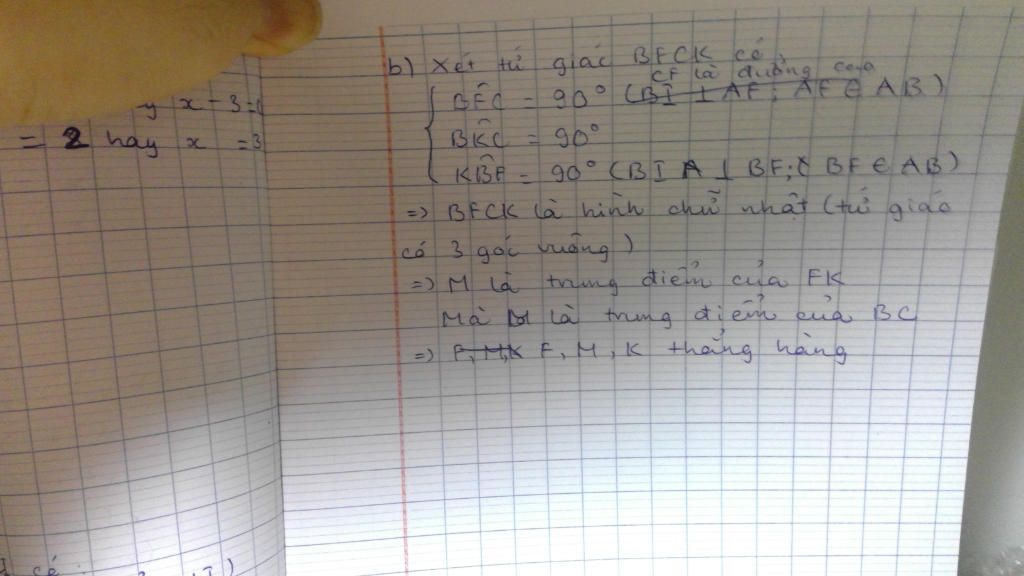 y x - 3 =
= 2 hay x = 3
b) Xét tứ giác BFCK có
CF là đường cao
BFC = 90° (BI ⊥ AF; AF ∈ AB)
BKC = 90°
KBF = 90° (BI ⊥ BF; BF ∈ AB)
=> BFCK là hình chữ nhật (tứ giác
có 3 góc vuông)
=> M là trung điểm của FK
Mà M là trung điểm của BC
=> F, M, K F, M, K thẳng hàng
có